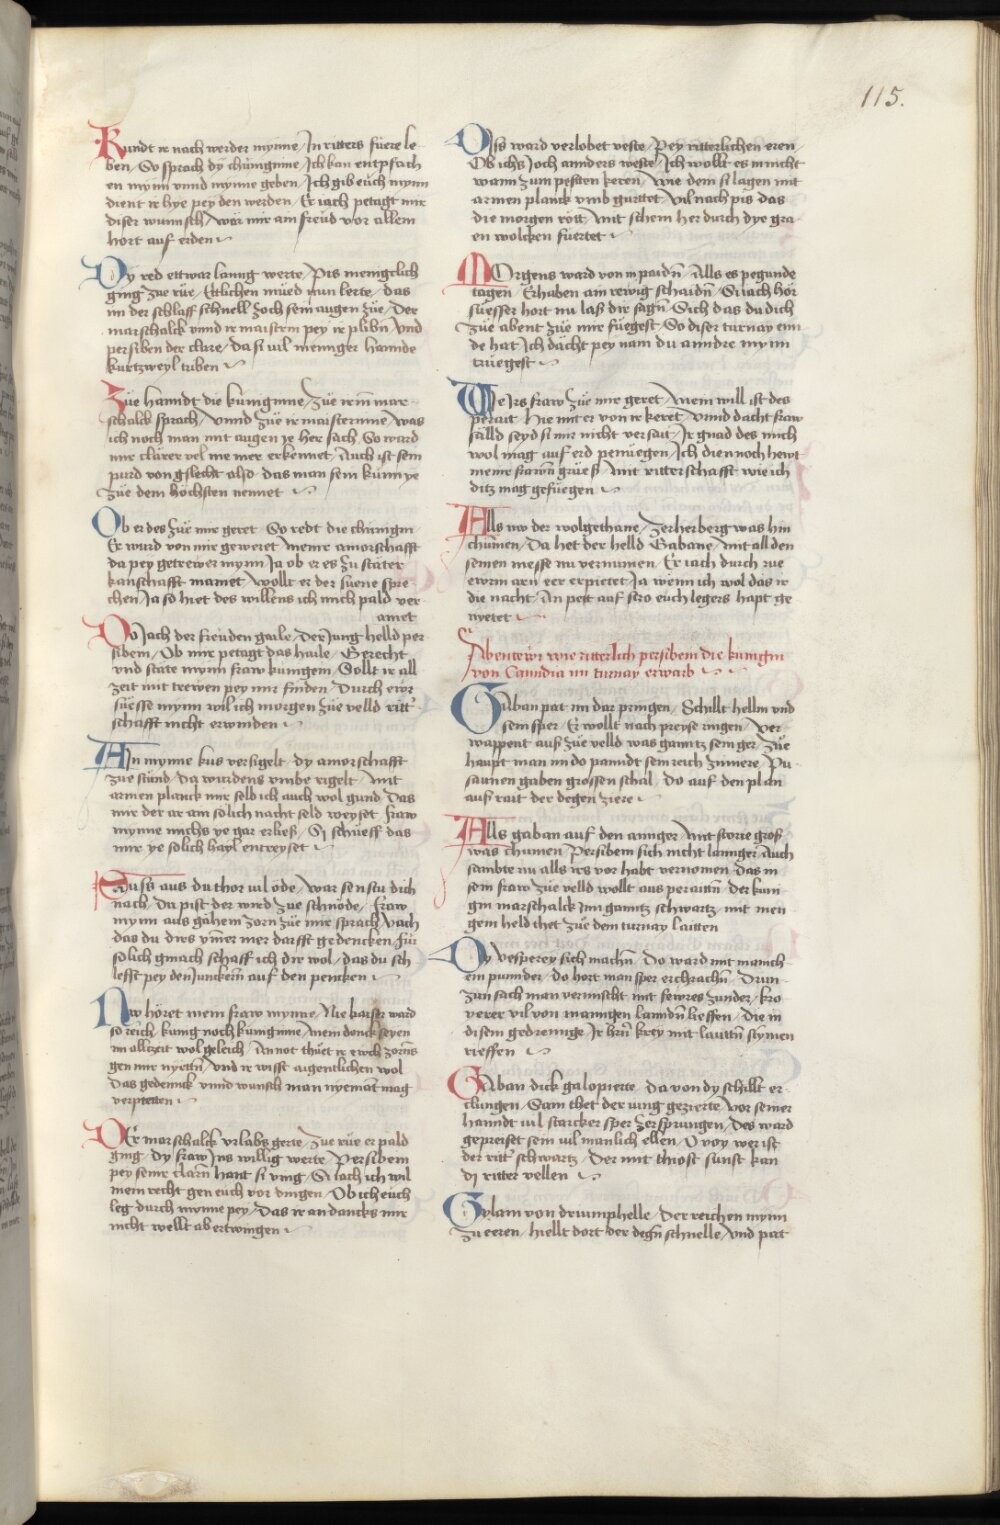 115.
Kundt ir nach werder mynne / In ritters fuere le
ben / So sprach dy chunigmne / Ich kan entpfach
en mynn vnnd mynne geben / Ich gib euch mynn
dient ir hye pey den werden / Er iach petagt mir
diser wunnsch / war mir am freud vor allem
hort auf erden
Dy red ettwar lanng werte / Pis menigclich
ging zue rue / Ettlichen mued nun lerte / das
im der schlaff schnell zoch sein augen zue / Der
marschalck vnnd ir maistrin pey ir plibn / Vnd
persiben der clare / da si vil menniger hannde
kurtzweyl triben
Zue hanndt die kunginne / Zue irm mar
schalck sprach / vnnd zue ir maisterinne / was
ich noch man mit augen ye her sach / So ward
mir clarer vel nie mer erkennet / Auch ist sein
purd von gslecht also / das man sein kunn ye
zue dem hochsten nennet
Ob er des zue mir geret / So redt die chunigin
Er wurd von mir geweret / meiner amorschafft
da pey getrewer mynn / Ja ob er es zu stater
kanschafft mainet / wollt er der suene spre
chen / Ja so hiet des willens ich mich pald ver
ainet
Do Jach der freuden gaile / Der Jung helld per
sibein / Ob mir petagt das haile / Gerecht
vnd state mynn fraw kunigein / Sollt ir all
zeit mit trewen pey mir finden / Durch ewr
suesse mynn wil ich morgen zue velld ritt
schafft nicht erwinden
Ain mynne kus versigelt / dy amorschafft
zue stund / Da wurdens vmbe rigelt / mit
armen planck mir selb ich auch wol gund / Das
mir der ar am solich nacht seld weyset / fraw
mynne michs ye gar erließ / Si schueff das
mir ye solich hayl entreyset
Auss aus du thor vil ode / war senstu dich
nach / Du pist der wird zue schnode / fraw
mynn aus gahem zorn zue mir sprach / Vach
das du dies ymer mer darfft gedencken / Fur
solich gmach schaff ich dir wol / das du sch
leffst pey den Junckern auf den pencken
Nw horet mein fraw mynne / Nie kaiser ward
so reich / kunig noch kunginne / mein donck seyen
im alltzeit wol geleich / An not thuet ir ewch zorns
gen mir nyettn / vnd ir wisst aigentlichen wol
Das gedennck vnnd wunsch man nyemant mag
verpieten
Der marschalck vrlabs gerte / zue rue er pald
ging / dy fraw Ins willig werte / Persibein
pey seiner clarn hant si ving / Si iach ich wil
mein recht gen euch vor dingen / Ob ich euch
leg durch mynne pey / Das ir an dancks mir
nicht wellt ab ertwingen
Diss ward verlobet veste / Pey ritterlichen eren
Ob ichs Joch annders weste / Ich wollt es mi nicht
wann zum pessten keren / wie dem si lagen mit
armen planck vmb gurttet / Vil nach pis das
die morgen rott / mit schein her durch dye gra
en wolcken fuertet
Morgens ward von in paidn / Alls es pegunde
tagen / Erhaben ain rewig schaidn / Si iach hor
suesser hort nu laß dir sagn / Sich das du dich
zue abent zue mir fuegest / So diser turnay ein
de hat / Ich dacht pey nam du anndre mynn
truegest
We Irs fraw zue mir geret / Mein will ist des
perait / Hie mit er von ir keret / vnnd dacht fraw
salld seyd si mir nicht versait / Ir gnad des mich
wol mag auf erd penuegen / Ich dien noch hewt
meiner frawn grueß / mit ritterschafft wie ich
ditz mag gefuegen
Alls nw der wolgethane / Zerherberg was hin
chumen / Da het der helld Gabane / mit all den
seinen messe nu vernumen / Er iach durch rue
ewrm arn eer erpietet / Ja wenn ich wol das ir
die nacht / An pett auf stro euch legers hapt ge
nyetet
Abentewr wie ritterlich persibein die kunigin
von Canndia im turnay erwarb
Gaban pat im dar pringen / Schillt hellm vnd
sein sper / Er wollt nach preyse ringen / Ver
wappent auß zue velld was ganntz sein ger / Zue
haupt man im do panndt sein reich zimiere / Pu
saunen gaben grossen schal / do auf den plan
aus rait der degen ziere
Alls gaban auf den annger / mit storie groß
was chumen / Persibein sich nicht lannger / Auch
saumbte nu alls irs vor habt vernomen / das in
sein fraw zue velld wollt aus peraittn / der kuni
gin marschalck Im gantz schwartz / mit meni
gem held thet zue dem turnay laitten
Dy vesperey sich machn / Do ward mit manch
em punnder / do hort man sper erchrachn / Drun
zun sach man vermischt mit fewres zunder / kro
yerer vil von manigen lanndn lieffen / die in
disem gedrennge / Ir hrn krey mit lauttn stymen
rieffen
Gaban dick galopierte / da von dy schillt er
clungen / Sam thet der iung gezierte / vor seiner
hanndt vil starcker sper zersprungen / Des ward
gepreiset sein vil manlich ellen / O voy wer ist
der ritt schwartz / Der mit thiost sunst kan
dy ritter vellen
Gylam von driumphelle / Der reichen mynn
zu eeren / hiellt dort der degn schnelle / vnd pat